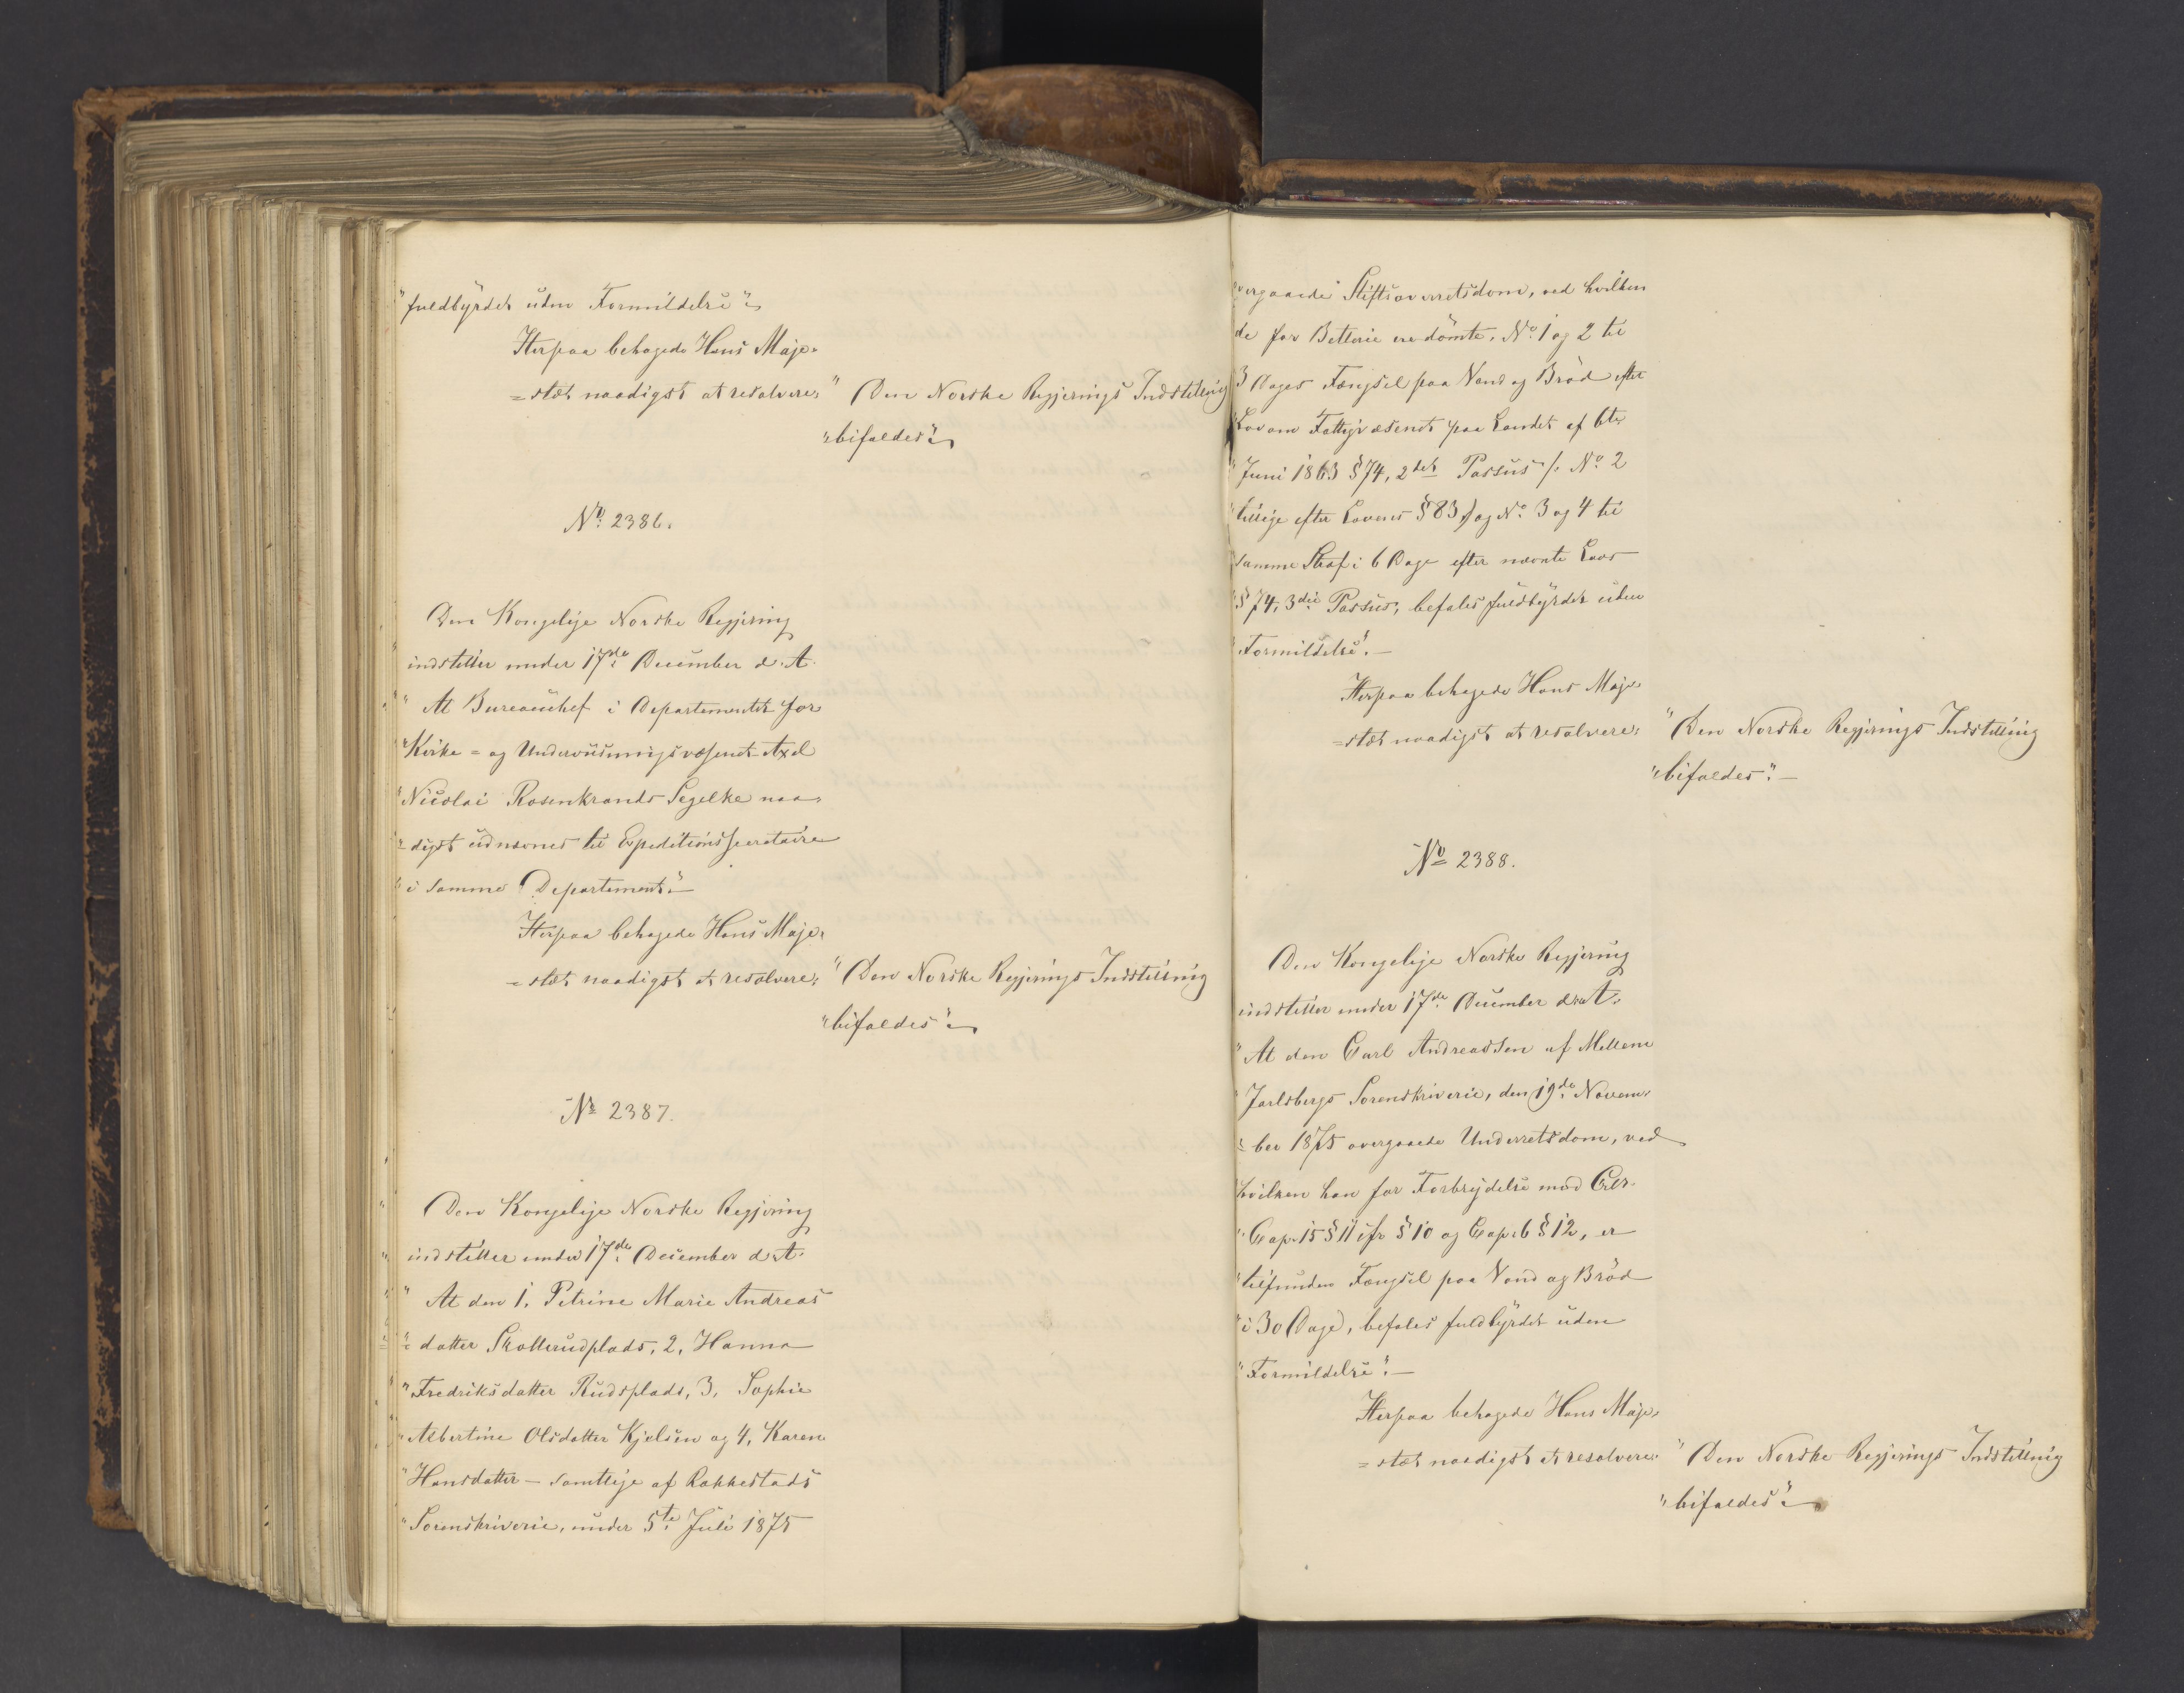 "fuldbyrdet uden Formildelse".
Herpaa behagede Hans Maje-
=stæt naadigst at resolvere: "Den Norske Regjerings Indstilling
"bifaldes".
No. 2386.
Den Kongelige Norske Regjering
indstiller under 17de December d. A.
"At Bureauchef i Departementet for
"Kirke= og Underviisningsvæsenet Axel
"Nicolai Rosenkrands Segelke naa-
"=digst udnævnes til Expeditionssecretaire
"i samme Departement".
Herpaa behagede Hans Maje-
=stæt naadigst at resolvere: "Den Norske Regjerings Indstilling
"bifaldes".
No 2387.
Den Kongelige Norske Regjering
indstiller under 17de December d. A.
"At den 1, Petrine Marie Andreas
"=datter Skotterudplads, 2, Hanna
"Fredriksdatter Rudsplads, 3, Sophie
"Albertine Olsdatter Kjelsen og 4, Karen
"Hansdatter – samtlige af Rakkestads
"Sorenskriverie, under 5te Juli 1875
"overgaaede Stiftsoverretsdom, ved hvilken
de for Betlerie ere dömte, No. 1 og 2 til
3 Dages Fængsel paa Vand og Bröd efter
"Lov om Fattigvæsenet paa Landet af 6te
"Juni 1863 §74, 2det Passus /: No. 2
"tillige efter Lovens §83 :/ og No. 3 og 4 til
"samme Straf i 6 Dage efter nævnte Lovs
"§74, 3die Passus, befales fuldbyrdet uden
"Formildelse".–
Herpaa behagede Hans Maje-
=stæt naadigst at resolvere: "Den Norske Regjerings Indstilling
"bifaldes".–
No 2388.
Den Kongelige Norske Regjering
indstiller under 17de December d. A.
"At den Carl Andreassen af Mellem
"Jarlsbergs Sorenskriverie, den 19de Novem-
"=ber 1875 overgaaede Underretsdom, ved
"hvilken han for Forbrydelse mod Crls.
"Cap. 15 §11 cfr §10 og Cap. 6 §12, er
"tilfunden Fængsel paa Vand og Bröd
"i 30 Dage, befales fuldbyrdet uden
"Formildelse".–
Herpaa behagede Hans Maje-
=stæt naadigst at resolvere: "Den Norske Regjerings Indstilling
"bifaldes".